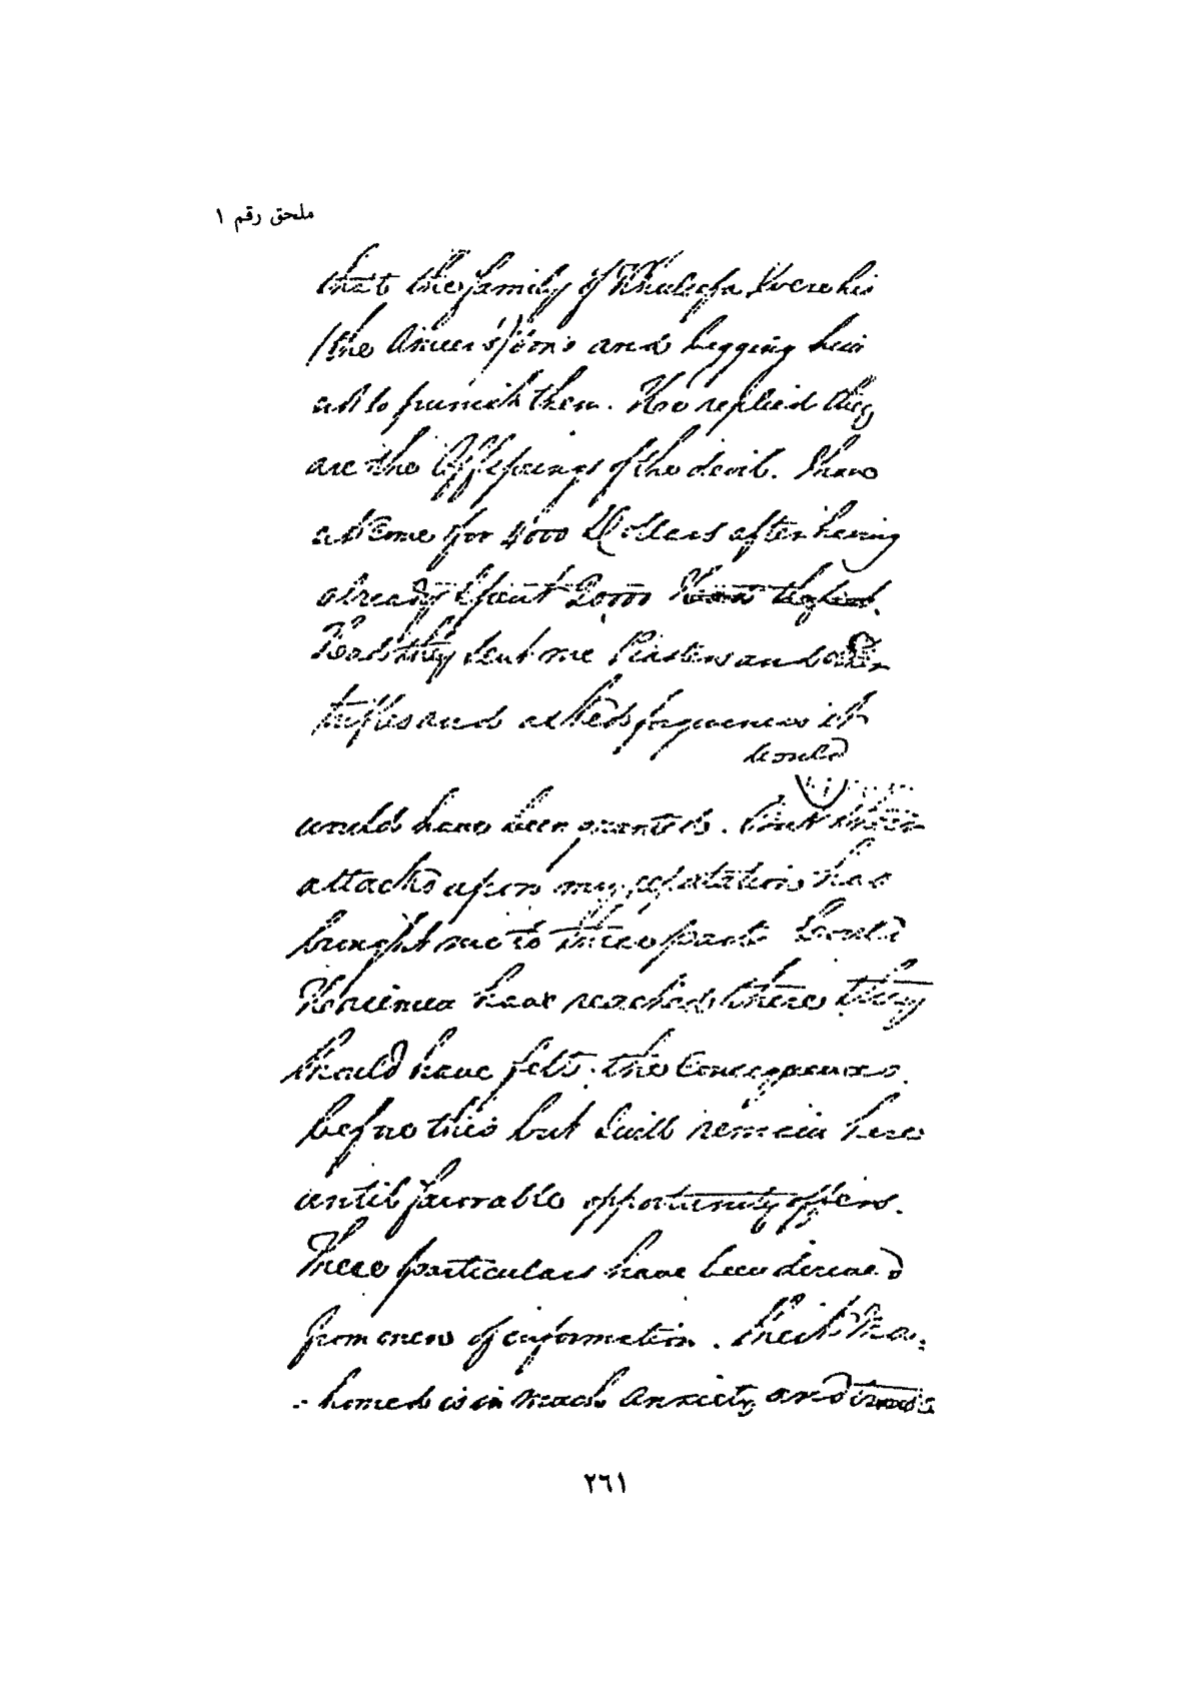 ملحق رقم ١
that the family of Khaleefa were his
(the Ameer's) sons and begging him
not to punish them. He replied they
are the Offsprings of the devil. I have
asked me for 4000 Dollars after having
already spent 2000
Had they sent me Piasters and other
trifles and asked forgiveness it
would
would have been granted. But their
attacks upon my reputation has
brought me to these parts
have reached there they
should have felt the Consequences
before this but I will remain here
until favorable opportunity offers.
These particulars have been derived
from of information. Sheik Ma-
-homed is in much anxiety and
٢٦١